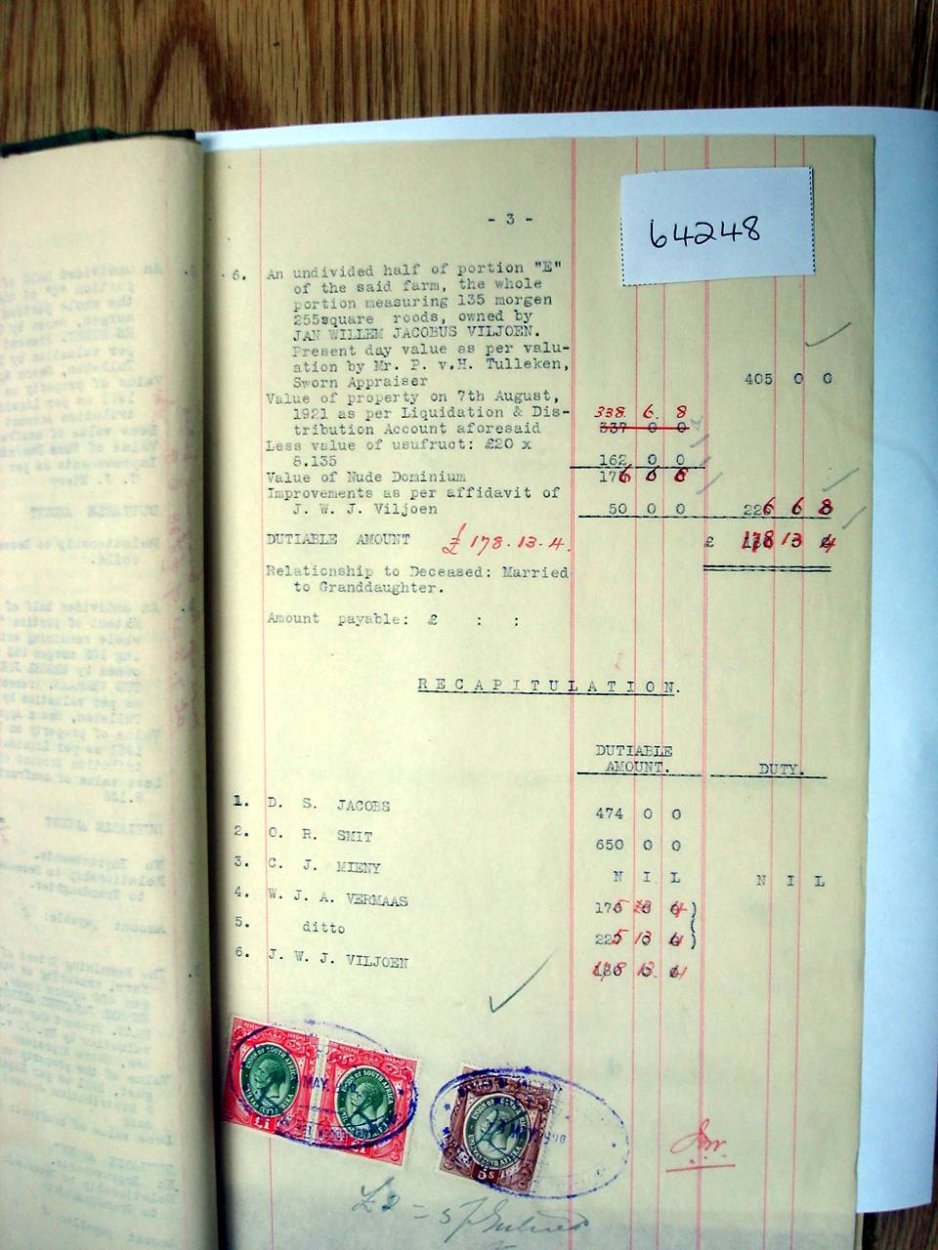 64248
- 3 -
6. An undivided half of portion "E"
of the said farm, the whole
portion measuring 135 morgen
255square roods, owned by
JAN WILLEM JACOBUS VILJOEN.
Present day value as per valu-
ation by Mr. P. v.H. Tulleken,
Sworn Appraiser 405 0 0
Value of property on 7th August,
1921 as per Liquidation & Dis- 338. 6. 8
tribution Account aforesaid 337 0 0
Less value of usufruct: £20 x
8.135 162 0 0
Value of Nude Dominium 176 6 8
Improvements as per affidavit of
J. W. J. Viljoen 50 0 0 226 6 8
DUTIABLE AMOUNT £178.13.4. £ 178 13 4
Relationship to Deceased: Married
to Granddaughter.
Amount payable: £ : :
RECAPITULATION.
DUTIABLE
AMOUNT. DUTY.
1. D. S. JACOBS 474 0 0
2. O. R. SMIT 650 0 0
3. C. J. MIENY N I L N I L
4. W. J. A. VERMAAS 175 13 4
5. ditto 225 13 4
6. J. W. J. VILJOEN 178 13 4
UNION OF SOUTH AFRICA
£1
UNION OF SOUTH AFRICA
£1
MAY
5s
£2 = 5/-